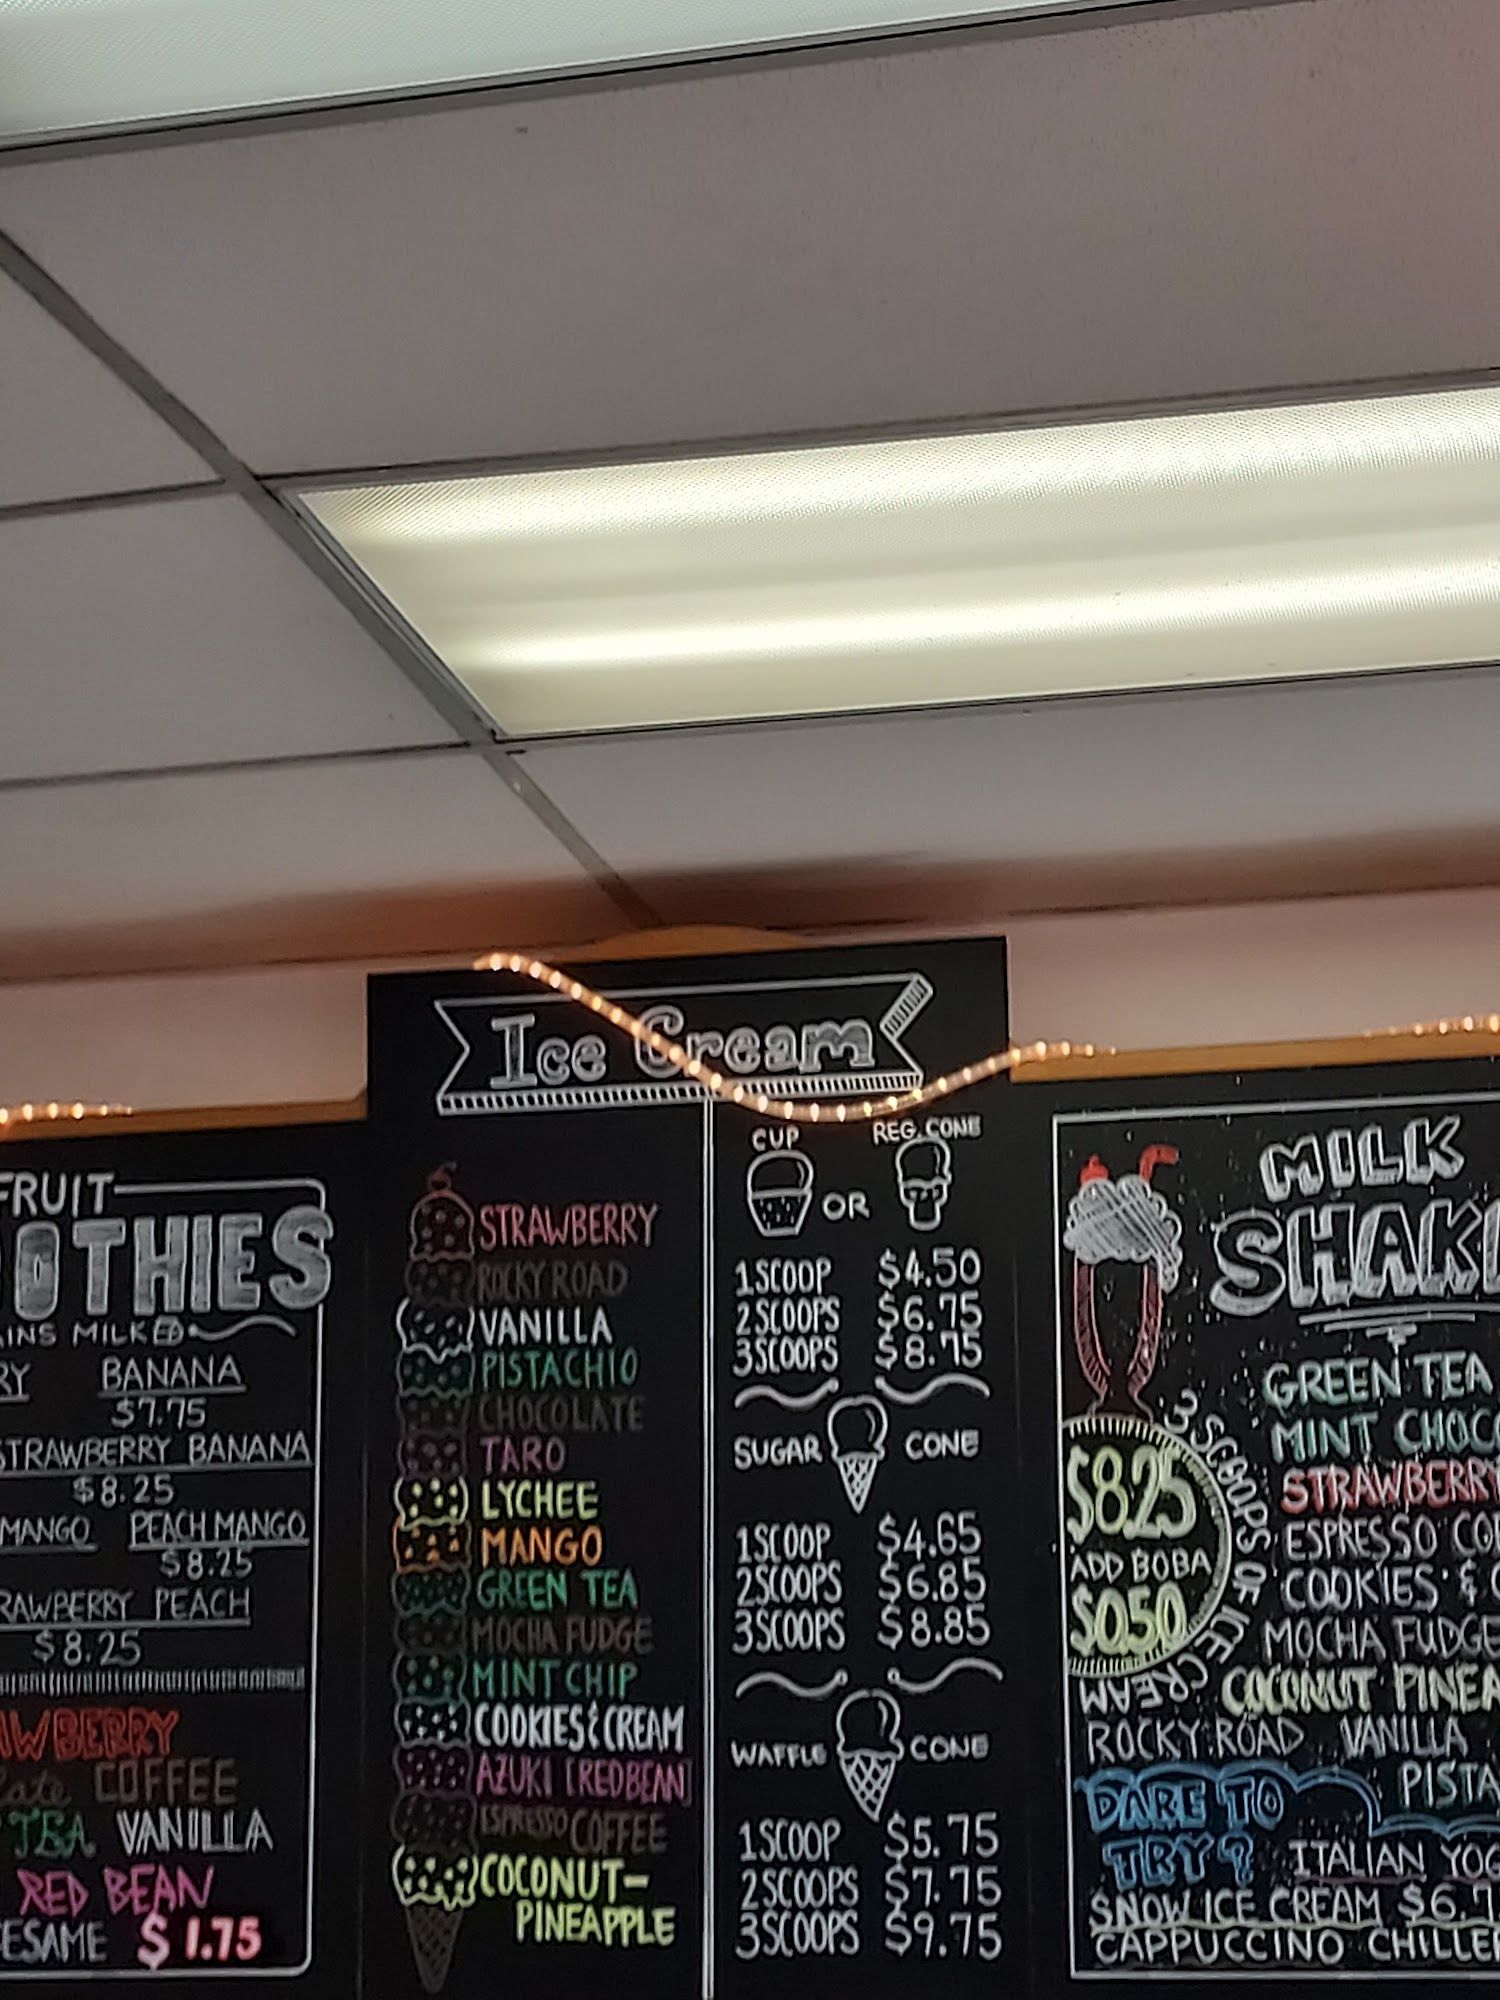 FRUIT
MILK
BANANA
$7.75
STRAWBERRY BANANA
$8.25
MANGO PEACH MANGO
$8.25
PEACH
$8.25
COFFEE
TEA VANILLA
RED BEAN
$1.75
Ice Cream
STRAWBERRY
ROCKY ROAD
VANILLA
PISTACHIO
CHOCOLATE
TARO
LYCHEE
MANGO
GREEN TEA
MOCHA FUDGE
MINT CHIP
COOKIES & CREAM
AZUKI [REDBEAN]
ESPRESSO COFFEE
COCONUT-
PINEAPPLE
CUP OR REG. CONE
1 SCOOP $4.50
2 SCOOPS $6.75
3 SCOOPS $8.75
SUGAR CONE
1 SCOOP $4.65
2 SCOOPS $6.85
3 SCOOPS $8.85
WAFFLE CONE
1 SCOOP $5.75
2 SCOOPS $7.75
3 SCOOPS $9.75
MILK
3 SCOOPS OF ICE CREAM
$8.25
ADD BOBA
$0.50
GREEN TEA
MINT
STRAWBERRY
ESPRESSO
COOKIES &
MOCHA FUDGE
COCONUT
ROCKY ROAD VANILLA
DARE TO
TRY?
ITALIAN
SNOW ICE CREAM
CAPPUCCINO